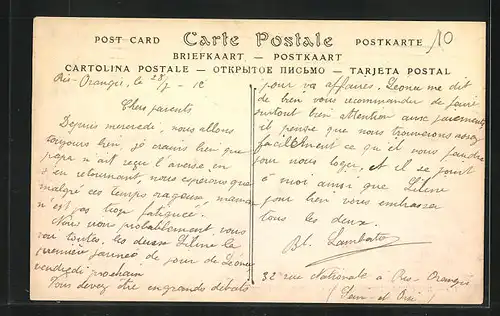 POST CARD Carte Postale POSTKARTE 10
BRIEFKAART — POSTKAART
CARTOLINA POSTALE — ОТКРЫТОЕ ПИСЬМО — TARJETA POSTAL
Ris-Orangis, le 28/7 - 1
Chers parents
Depuis mercredi, nous allons
toujours bien, je crains bien que
papa n'ait reçu l'averse en
s'en retournant, nous espérons que
malgré ces temps nageux, maman
n'est pas trop fatiguée.
Nous nous probablement vous
voir toutes, les deux Liline la
première journée de jour de Leonce
vendredi prochain
Pour devez être en grands débats
pour va affaires. Leonce me dit
de bien vous recommander de faire
surtout bien attention aux payements
il pense que nous trouverons assez
facilement ce qu'il vous faudra
pour nous loger, et il se joint
à moi ainsi que Liline
pour bien vous embrasser
tous les deux.
Bl. Lambert
32 rue Nationale à Ris-Orangis
(Seine-et-Oise)